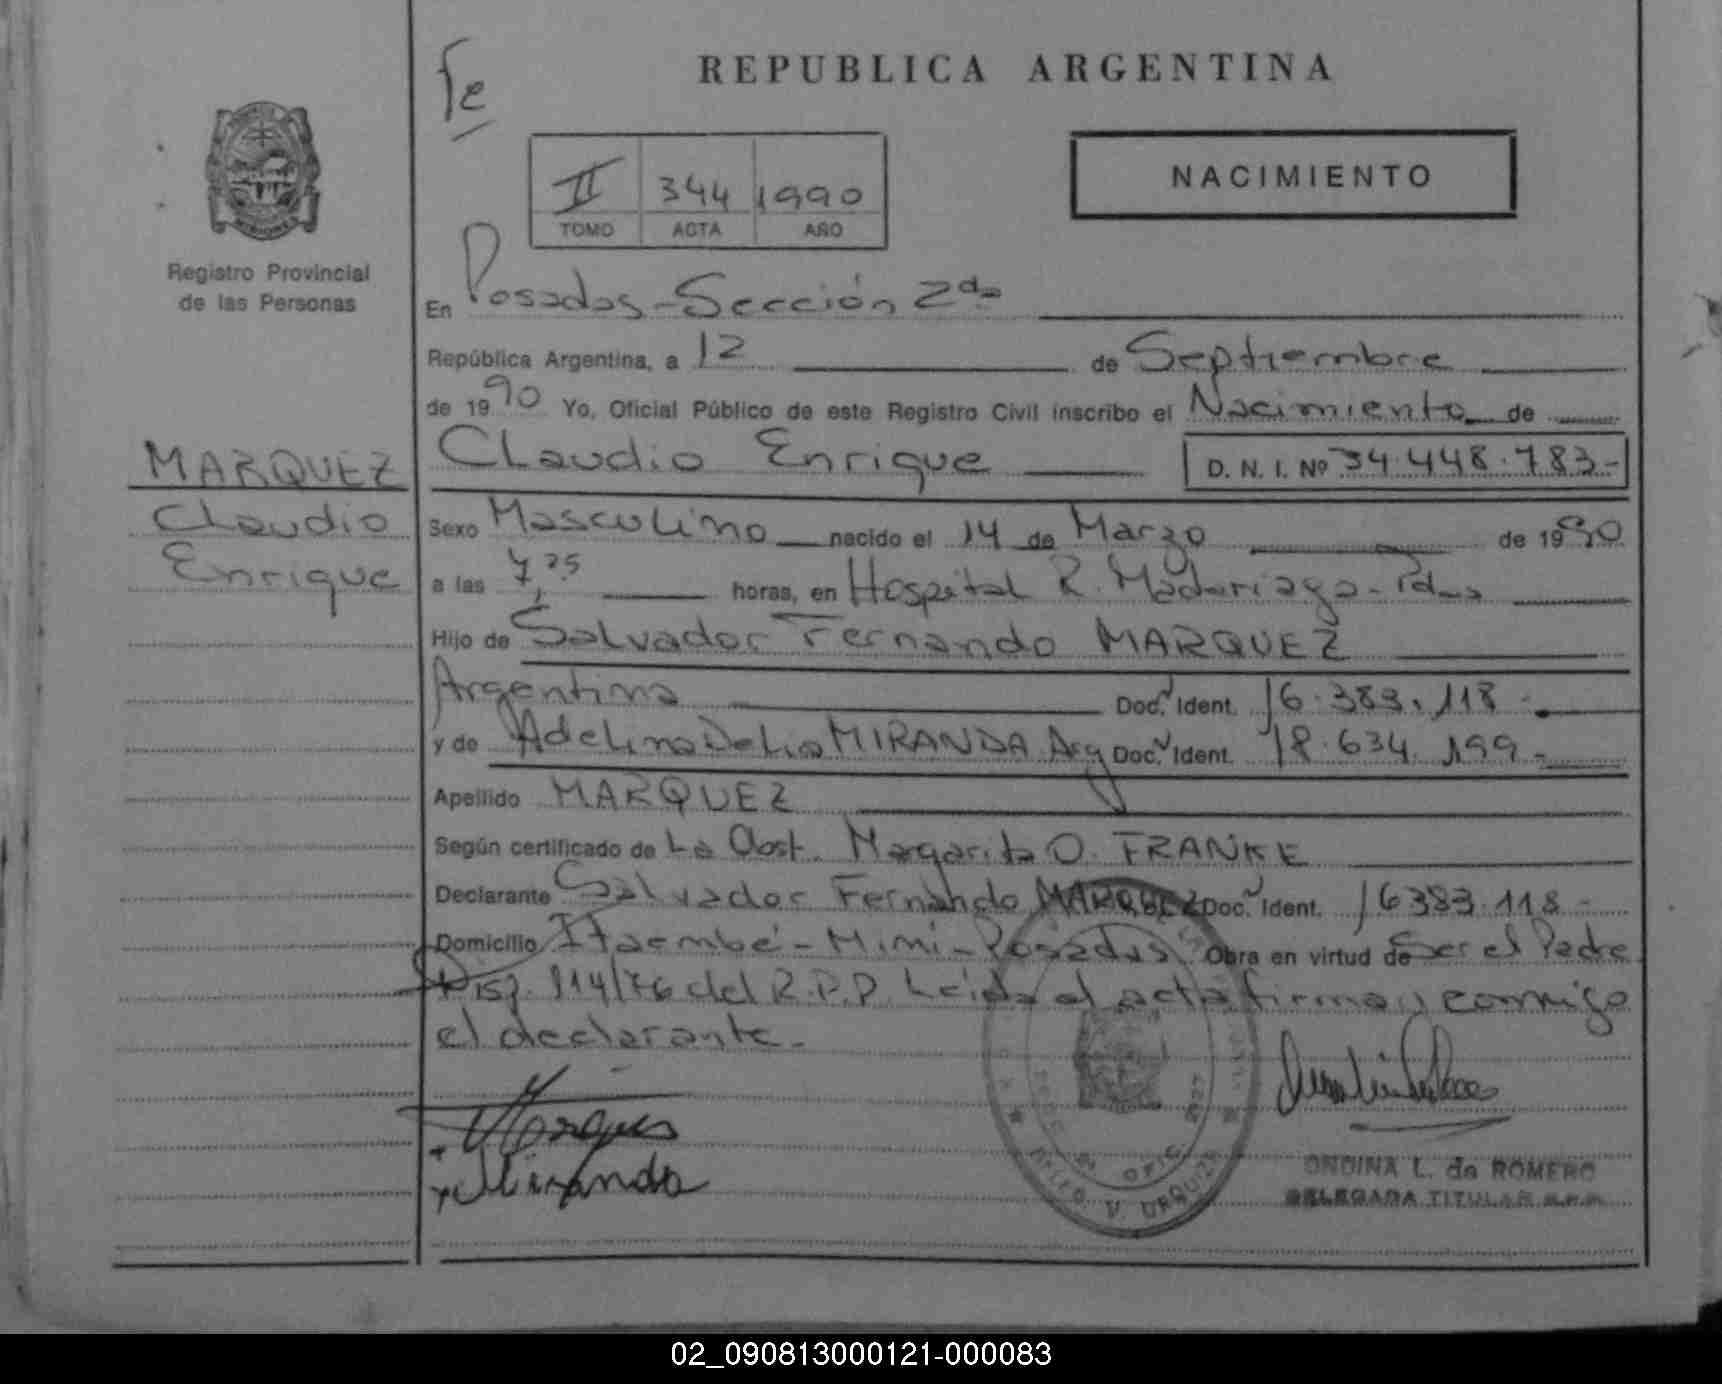 Fe
REPUBLICA ARGENTINA
II 344 1990
TOMO ACTA AÑO
NACIMIENTO
MISIONES
Registro Provincial
de las Personas
En Posadas - Sección 2da
República Argentina, a 12 de Septiembre
de 1990 Yo, Oficial Público de este Registro Civil inscribo el Nacimiento de
MARQUEZ
Claudio
Enrique
Claudio Enrique D. N. I. Nº 34.448.783-
Sexo Masculino nacido el 14 de Marzo de 1990
a las 7,25 horas, en Hospital R. Madariaga - Pdas
Hijo de Salvador Fernando MARQUEZ
Argentina Doc. Ident. 16.383.118-
y de Adelina Delia MIRANDA Arg Doc. Ident. 18.634.199-
Apellido MARQUEZ
Según certificado de La Obst. Margarita O. FRANKE
Declarante Salvador Fernando MARQUEZ Doc. Ident. 16383.118-
Domicilio Itaembé - Mini - Posadas Obra en virtud de Ser el Padre
Disp. 114/76 del R.P.P. Leida el acta firman conmigo
el declarante.
Marquez
Miranda
V. URQUIZA
ONDINA L. de ROMERO
DELEGADA TITULAR
02_090813000121-000083